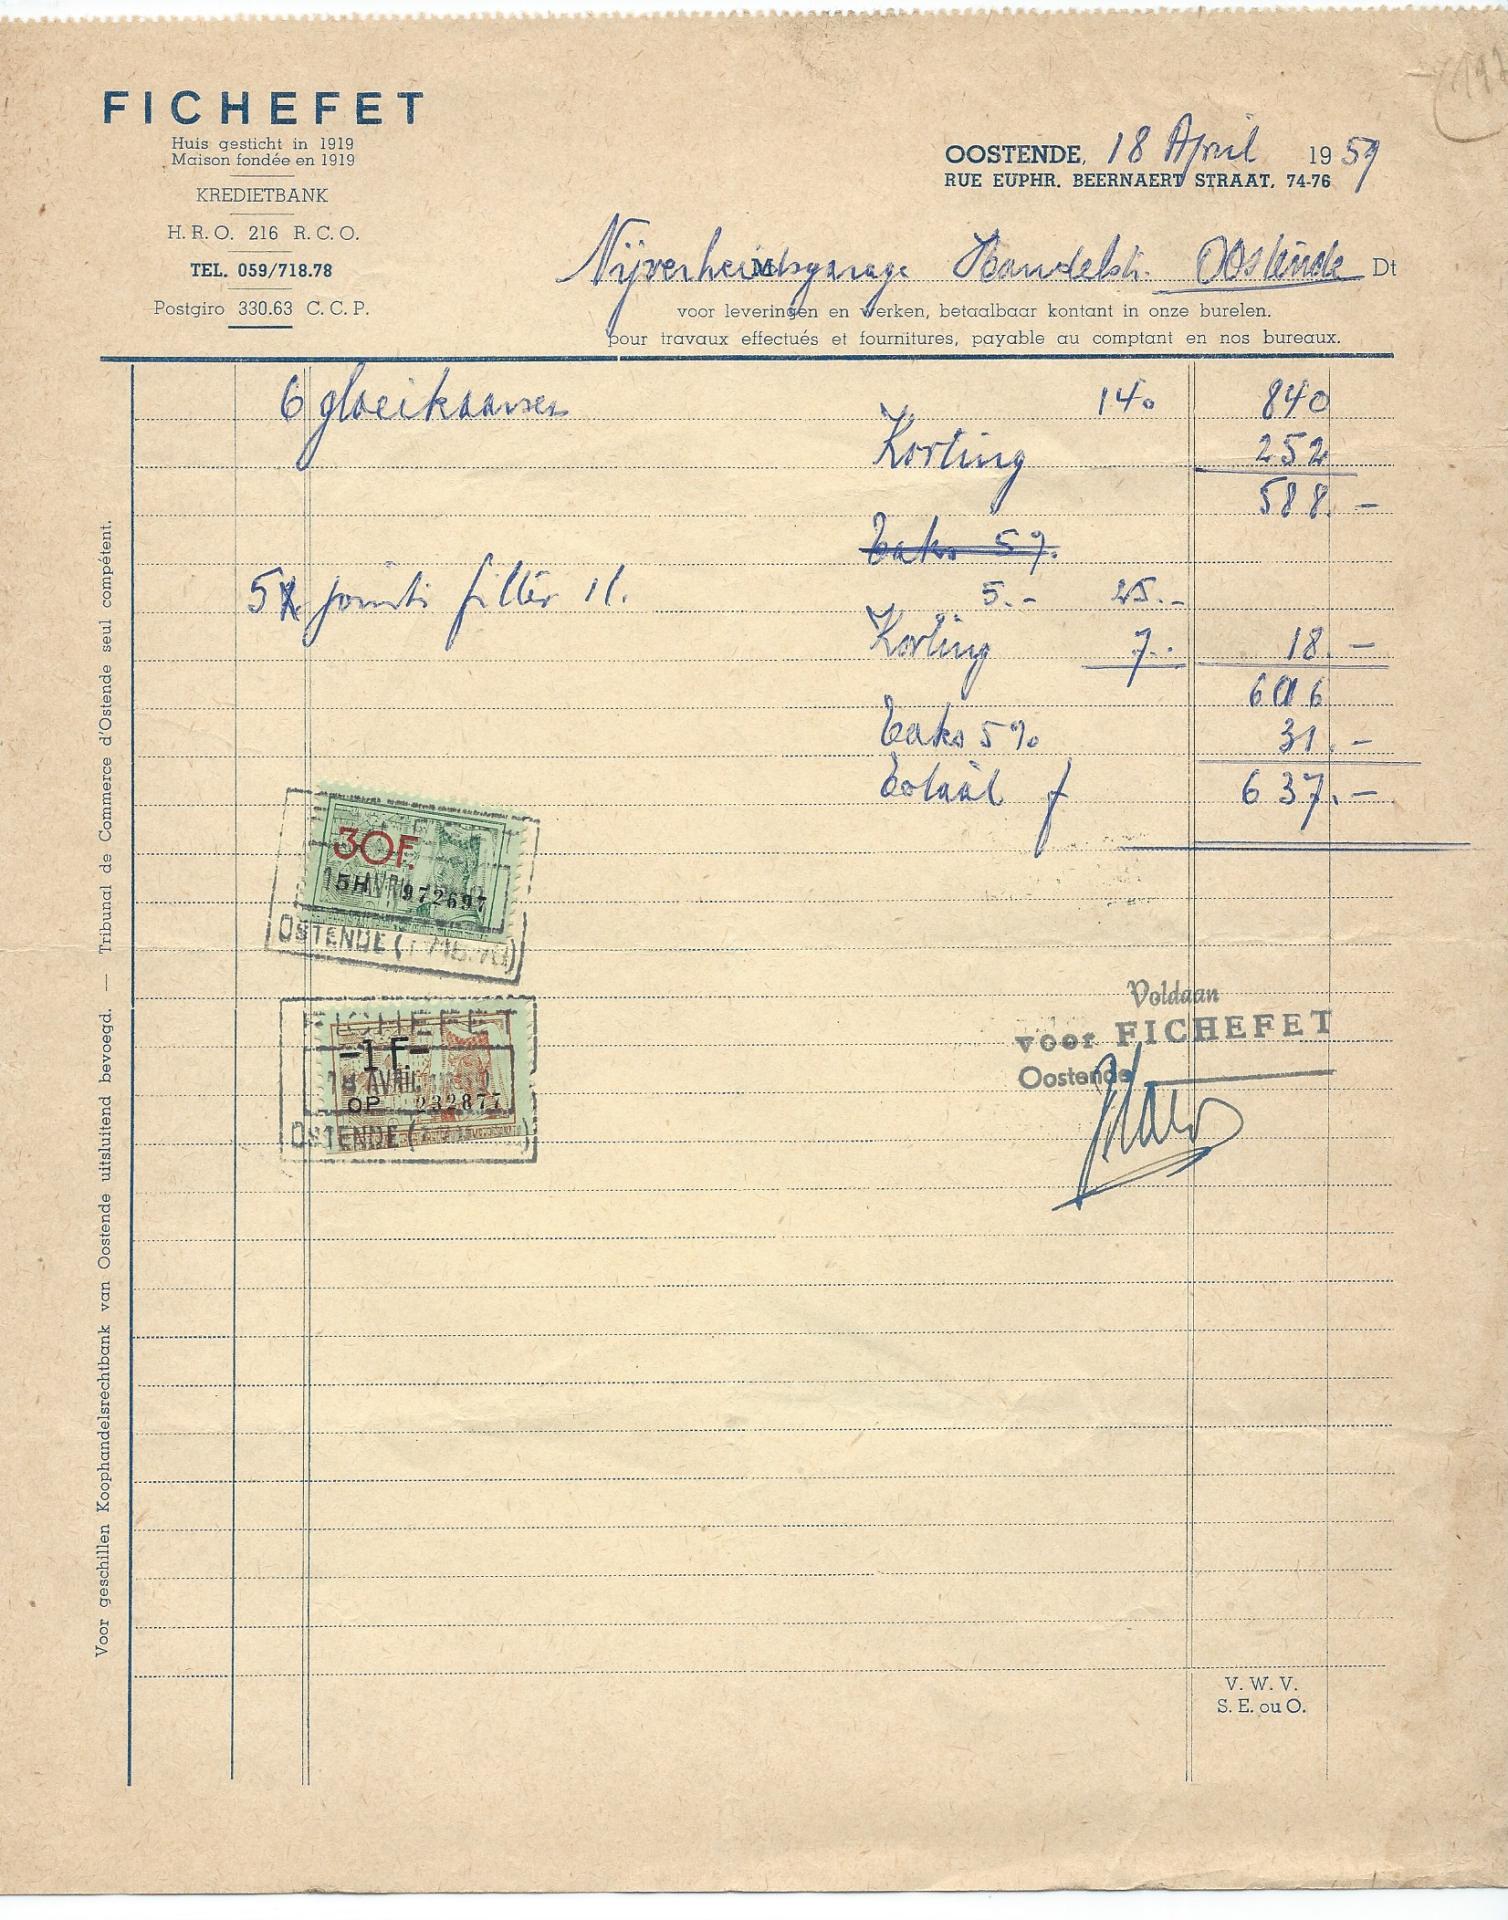 FICHEFET
Huis gesticht in 1919
Maison fondée en 1919
KREDIETBANK
H. R. O. 216 R. C. O.
TEL. 059/718.78
Postgiro 330.63 C. C. P.
OOSTENDE, 18 April 1959
RUE EUPHR. BEERNAERT STRAAT, 74-76
M Nijverheidsgarage Handelstr. Oostende Dt
voor leveringen en werken, betaalbaar kontant in onze burelen.
pour travaux effectués et fournitures, payable au comptant en nos bureaux.
6 gloeikaarsen 140 840
Korting 252
588.-
Taks 5%
5x joints filter 5.- 25.-
Korting 7.- 18.-
606
Taks 5% 31.-
Totaal f 637.-
30F.
5H 972697
OSTENDE
FICHEFET
-1F-
18 AVRIL
OP 232877
OSTENDE
Voldaan
voor FICHEFET
Oostende
Voor geschillen Koophandelsrechtbank van Oostende uitsluitend bevoegd. — Tribunal de Commerce d'Ostende seul compétent.
V. W. V.
S. E. ou O.